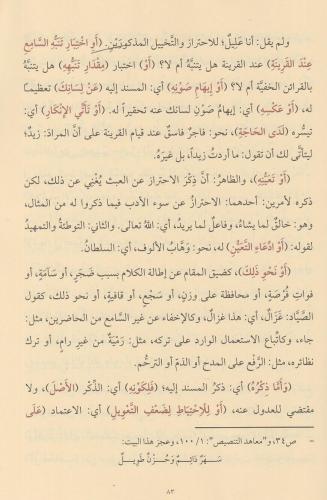 ولم يقل: أنا عَليلٌ؛ للاحتراز والتَّخييل المذكورَيْنِ. (أَوِ اخْتِبَارِ تَنَبُّهِ السَّامِعِ
عِنْدَ القَرِينَةِ) عند القرينة هل يتنبَّهُ أم لا؟ (أَوْ) اختبار (مِقْدَارِ تَنَبُّهِهِ) هل يتنبَّهُ
بالقرائن الخفيَّة أم لا؟ (أَوْ إِيهَامِ صَوْنِهِ) أي: المسند إليه (عَنْ لِسَانِكَ) تعظيمًا
له، (أَوْ عَكْسِهِ) أي: إيهام صَوْنِ لسانك عنه تحقيرًا له. (أَوْ تَأَتِّي الإِنْكَارِ) أي:
تيسُّره (لَدَى الحَاجَةِ)، نحو: فاجرٌ فاسقٌ عند قيام القرينة على أنَّ المرادَ: زيدٌ؛
ليتأتَّى لك أن تقول: ما أردتُ زيداً، بل غيرَهُ.
(أَوْ تَعَيُّنِهِ)، والظاهرُ: أنَّ ذِكرَ الاحتراز عن العبث يُغْنِي عن ذلك، لكن
ذكره لأمرين: أحدهما: الاحترازُ عن سوء الأدب فيما ذكروا له من المثال،
وهو: خالقٌ لما يشاءُ، وفاعلٌ لما يريدُ، أي: اللهُ تعالى. والثاني: التوطئةُ والتمهيدُ
لقوله: (أَوِ ادِّعَاءِ التَّعَيُّنِ) له، نحو: وَهَّابُ الألوف، أي: السلطانُ.
(أَوْ نَحْوِ ذَلِكَ)، كضيق المقام عن إطالة الكلام بسبب ضَجَرٍ، أو سَآمَةٍ، أو
فواتِ فُرْصَةٍ، أو محافظة على وزنٍ، أو سَجْعٍ، أو قافيةٍ، أو نحو ذلك، كقول
الصَّيَّاد: غَزَالٌ، أي: هذا غزالٌ، وكالإخفاء عن غير السامع من الحاضرين، مثل:
جاء، وكاتِّباع الاستعمال الوارد على تركه، مثل: رَمْيَةٌ من غيرِ رامٍ، أو ترك
نظائره، مثل: الرَّفْعِ على المدح أو الذمّ أو الترحُّم.
(وَأَمَّا ذِكْرُهُ) أي: ذكرُ المسند إليه؛ (فَلِكَوْنِهِ) أي: الذِّكْر (الأَصْلَ)، ولا
مقتضي للعدول عنه، (أَوْ لِلِاحْتِيَاطِ لِضَعْفِ التَّعْوِيلِ) أي: الاعتماد (عَلَى
= ص٣٤، و"معاهد التنصيص": ١/ ١٠٠، وعجز هذا البيت:
سَهَرٌ دَائِمٌ وَحُزْنٌ طَوِيلُ
٨٣